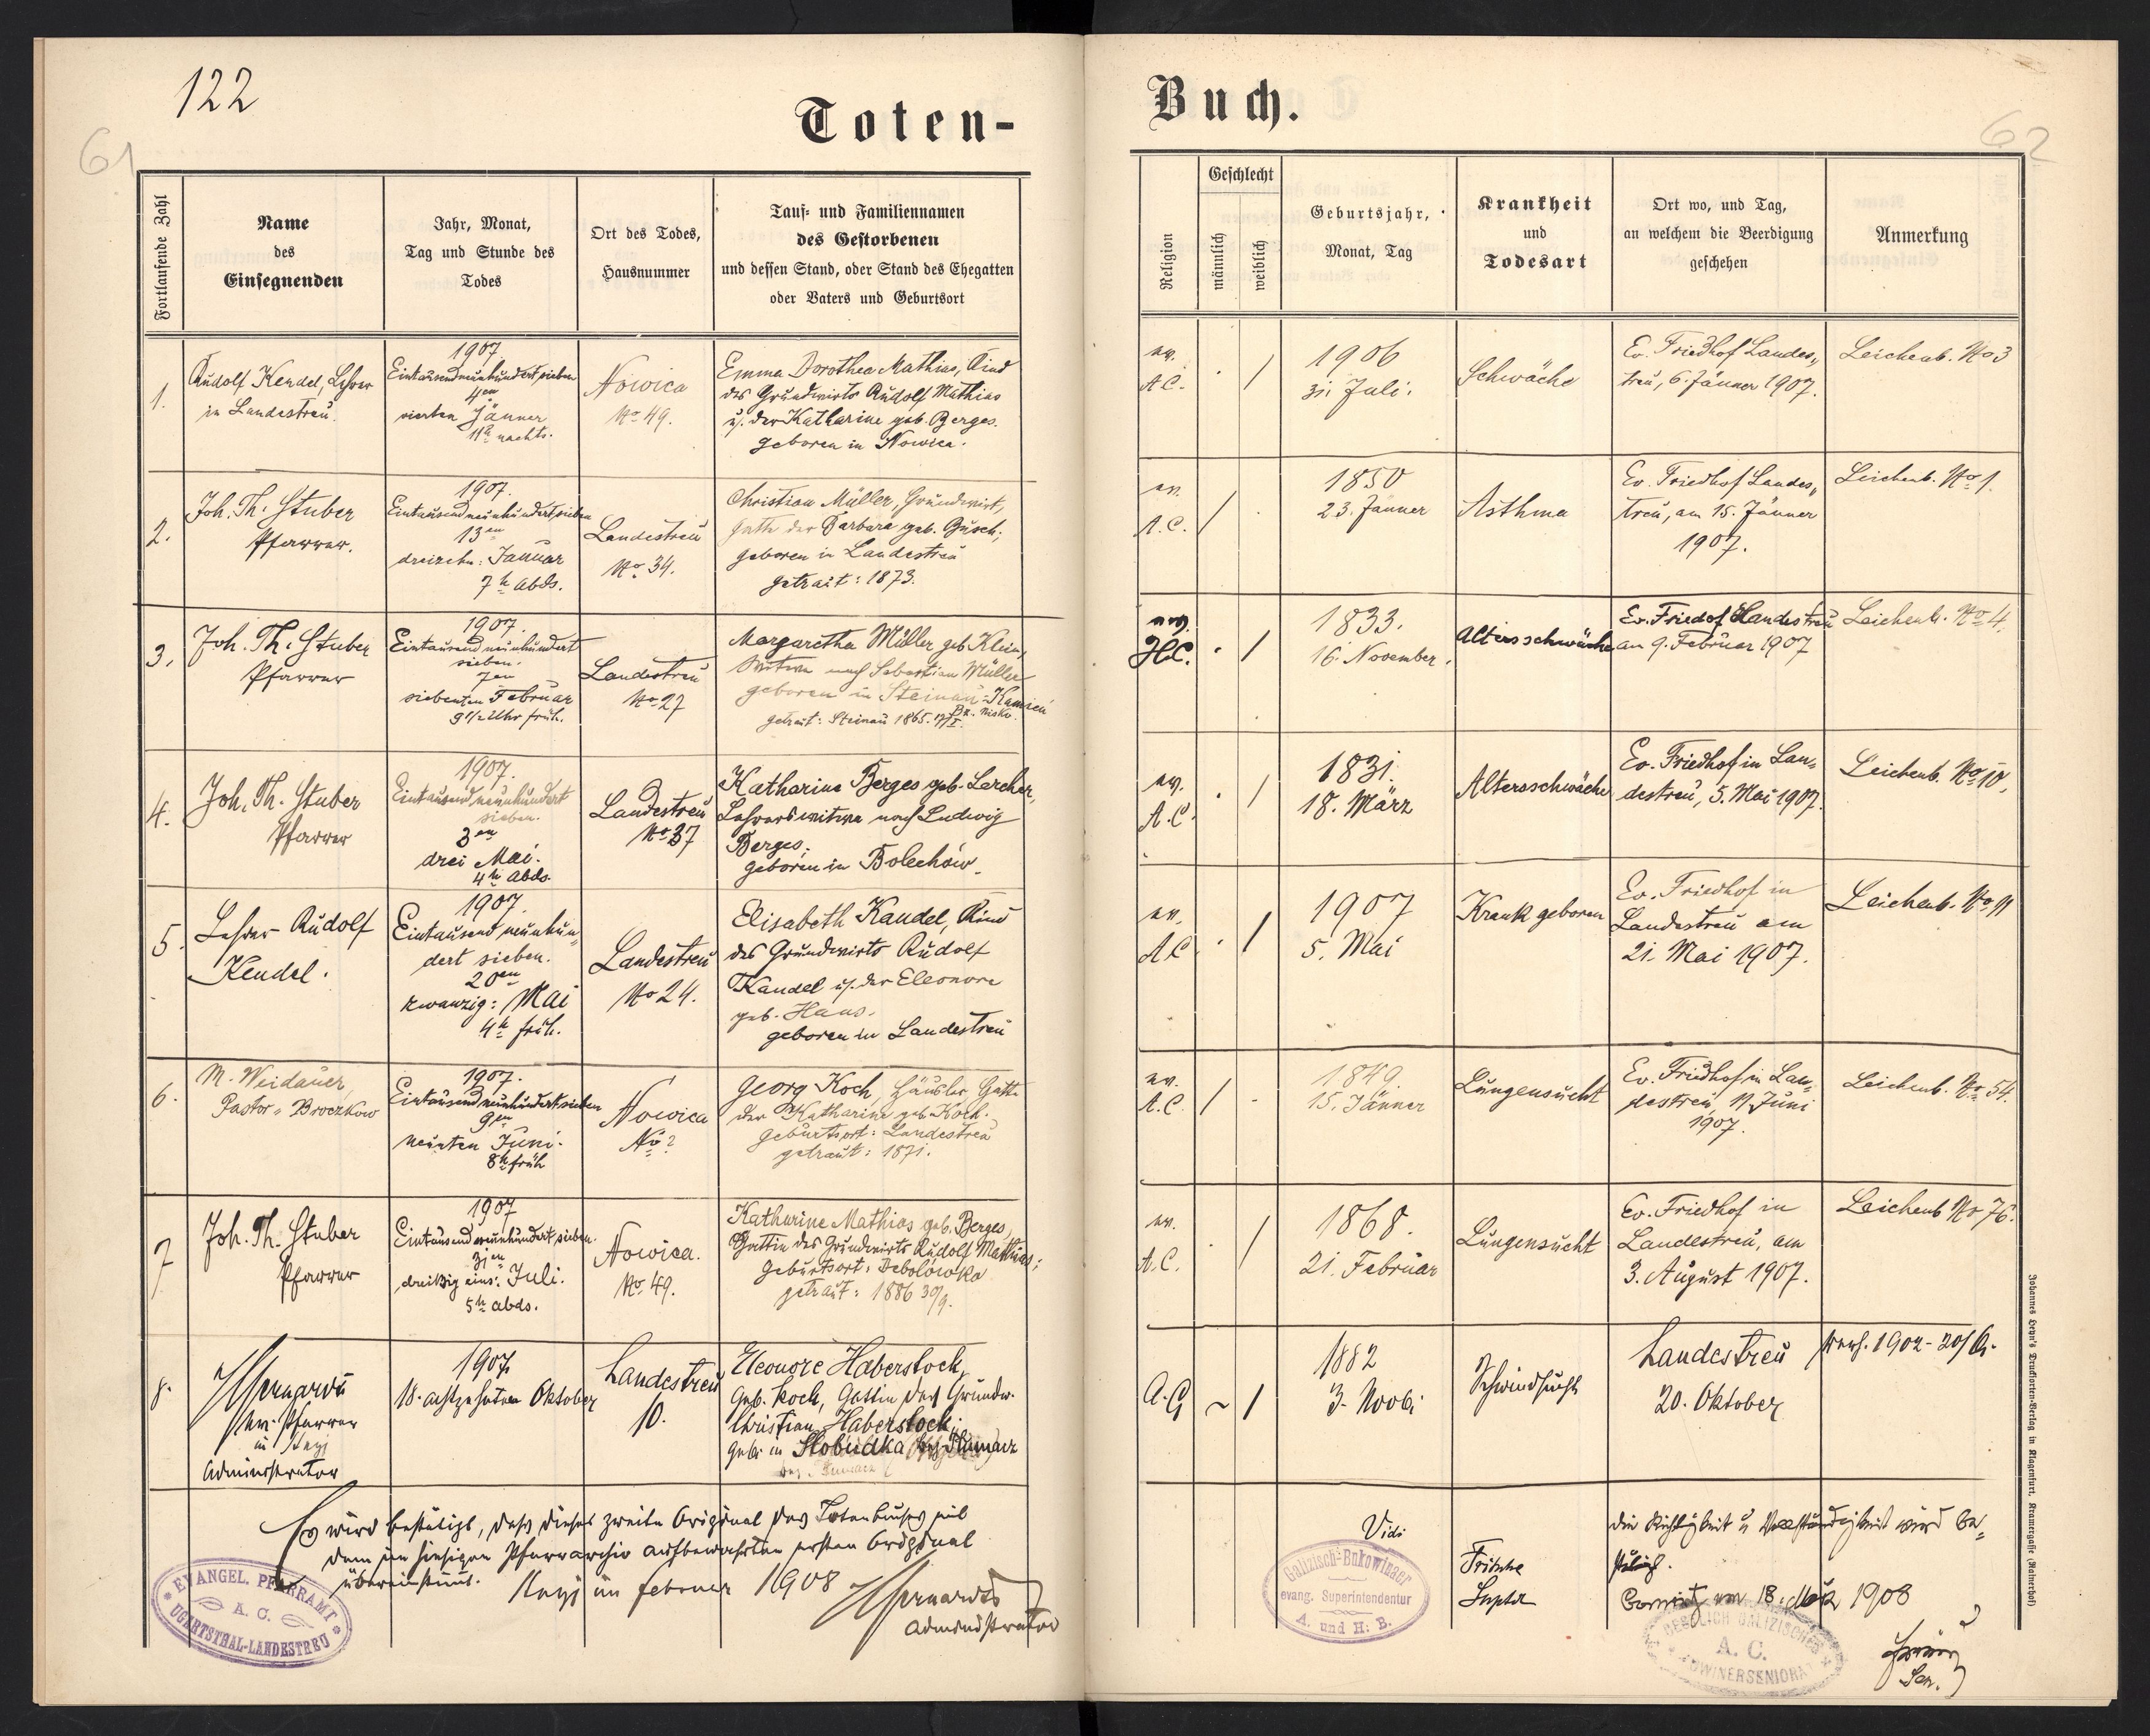 122
61
Toten-
Fortlaufende Zahl
Name
des
Einsegnenden
Jahr, Monat,
Tag und Stunde des
Todes
Ort des Todes,
Hausnummer
Tauf- und Familiennamen
des Gestorbenen
und dessen Stand, oder Stand des Ehegatten
oder Vaters und Geburtsort
1.
Rudolf Kendel, Lehrer
in Landestreu.
1907.
Eintausendneunhundert sieben
4en
vierten Jänner
11h nachts.
Nowica
No 49.
Emma Dorothea Mathias, Kind
des Grundwirts Rudolf Mathias
u. der Katharine geb. Berges.
geboren in Nowica.
2.
Joh. Th. Stuber
Pfarrer.
1907.
Eintausendneunhundert sieben
13en
dreizehn: Januar
7h abds.
Landestreu
No 34.
Christian Müller, Grundwirt,
Gatte der Barbara geb. Busch;
geboren in Landestreu
getraut: 1873.
3.
Joh. Th. Stuber
Pfarrer
1907.
Eintausend neunhundert
sieben.
7en
siebenten Februar
9 1/2 Uhr früh.
Landestreu
No 27
Margaretha Müller geb. Klein,
Witwe nach Sebastian Müller
geboren in Steinau-Kamień
Bz. Nisko.
getraut: Steinau 1865.
4.
Joh. Th. Stuber
Pfarrer
1907.
Eintausend neunhundert
sieben.
3en
drei Mai.
4h Abds.
Landestreu
No 37
Katharina Berges geb. Lercher,
Lehrerswitwe nach Ludwig
Berges;
geboren in Bolechów.
5.
Lehrer Rudolf
Kendel.
1907.
Eintausend neunhun-
dert sieben.
20en
zwanzig: Mai
4h früh.
Landestreu
No 24.
Elisabeth Kandel, Kind
des Grundwirts Rudolf
Kandel u. der Eleonore
geb. Haus.
geboren in Landestreu
6.
M. Weidauer,
Pastor - Broczkow
1907.
Eintausend neunhundert sieben
9en
neunten Juni.
8h früh
Nowica
No ?
Georg Koch, Häusler, Gatte
der Katharina geb. Koch.
Geburtsort: Landestreu
getraut: 1871.
7
Joh. Th. Stuber
Pfarrer
1907
Eintausend neunhundert sieben.
31en
dreißig eins: Juli.
5h abds.
Nowica.
No 49.
Katharine Mathias geb. Berges,
Gattin des Grundwirts Rudolf Mathias;
Geburtsort: Debolówka
getraut: 1886 30/9.
8.
ev. Pfarrer
in Stryj
Administrator
1907.
18. achtzehnten Oktober
Landestreu
10.
Eleonore Haberstock,
geb. Koch, Gattin des Grundw.
Christian Haberstock;
geb. in Slobudka
Es wird bestätigt, daß dieses zweite Original des Totenbuches mit
dem im hiesigen Pfarrarchiv aufbewahrten ersten Original
übereinstimmt.
Stryj im Februar 1908
Administrator
EVANGEL. PFARRAMT
A. C.
UGARTSTHAL-LANDESTREU
Buch.
62
Religion
Geschlecht
männlich
weiblich
Geburtsjahr,
Monat, Tag
Krankheit
und
Todesart
Ort wo, und Tag,
an welchem die Beerdigung
geschehen
Anmerkung
ev.
A.C.
. /
1906
31. Juli.
Schwäche
Ev. Friedhof Landes-
treu, 6. Jänner 1907.
Leichenb. No 3
ev.
A.C.
/ .
1850
23. Jänner
Asthma
Ev. Friedhof Landes-
treu, am 15. Jänner
1907.
Leichenb. No 1.
ev.
H.C.
. /
1833.
16. November.
Altersschwäche
Ev. Friedof Landestreu
am 9. Februar 1907
Leichenb. No 4.
ev.
A.C.
. /
1831.
18. März
Altersschwäche
Ev. Friedhof in Lan-
destreu, 5. Mai 1907.
Leichenb. No 10.
ev.
A.C.
. /
1907
5. Mai
Krank geboren
Ev. Friedhof in
Landestreu am
21. Mai 1907.
Leichenb. No 11
ev.
A.C.
/ .
1849.
15. Jänner
Lungensucht
Ev. Friedhof in Lan-
destreu, 11. Juni
1907.
Leichenb. No 54.
ev.
A.C.
. /
1868.
21. Februar
Lungensucht
Ev. Friedhof in
Landestreu, am
3. August 1907.
Leichenb No 76.
A.C.
~ /
1882
3. Novb.
Schwindsucht
Landestreu
20. Oktober
verh. 1902 - 20/
Vidi
Galizisch-Bukowinaer
evang. Superintendentur
A. und H. B.
Fritsche
Suptdt
Die Richtigkeit u Vollständigkeit wird be-
stätigt.
am 18. März 1908
A. C.
Sen.
Johannes Heyn's Drucksorten-Verlag in Klagenfurt, Kramergasse (Rainerhof)